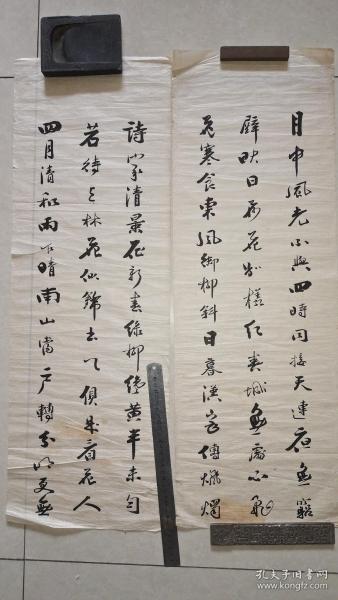 月中風光不與四時同接天蓮葉無窮
碧映日荷花別樣红春城無處不飛
花寒食東風御柳斜日暮漢宮傳蠟燭
詩家清景在新春綠柳纔黃半未勻
若待上林花似錦出门俱是看花人
四月清和雨乍晴南山當户轉分明更無
孔夫子旧书网